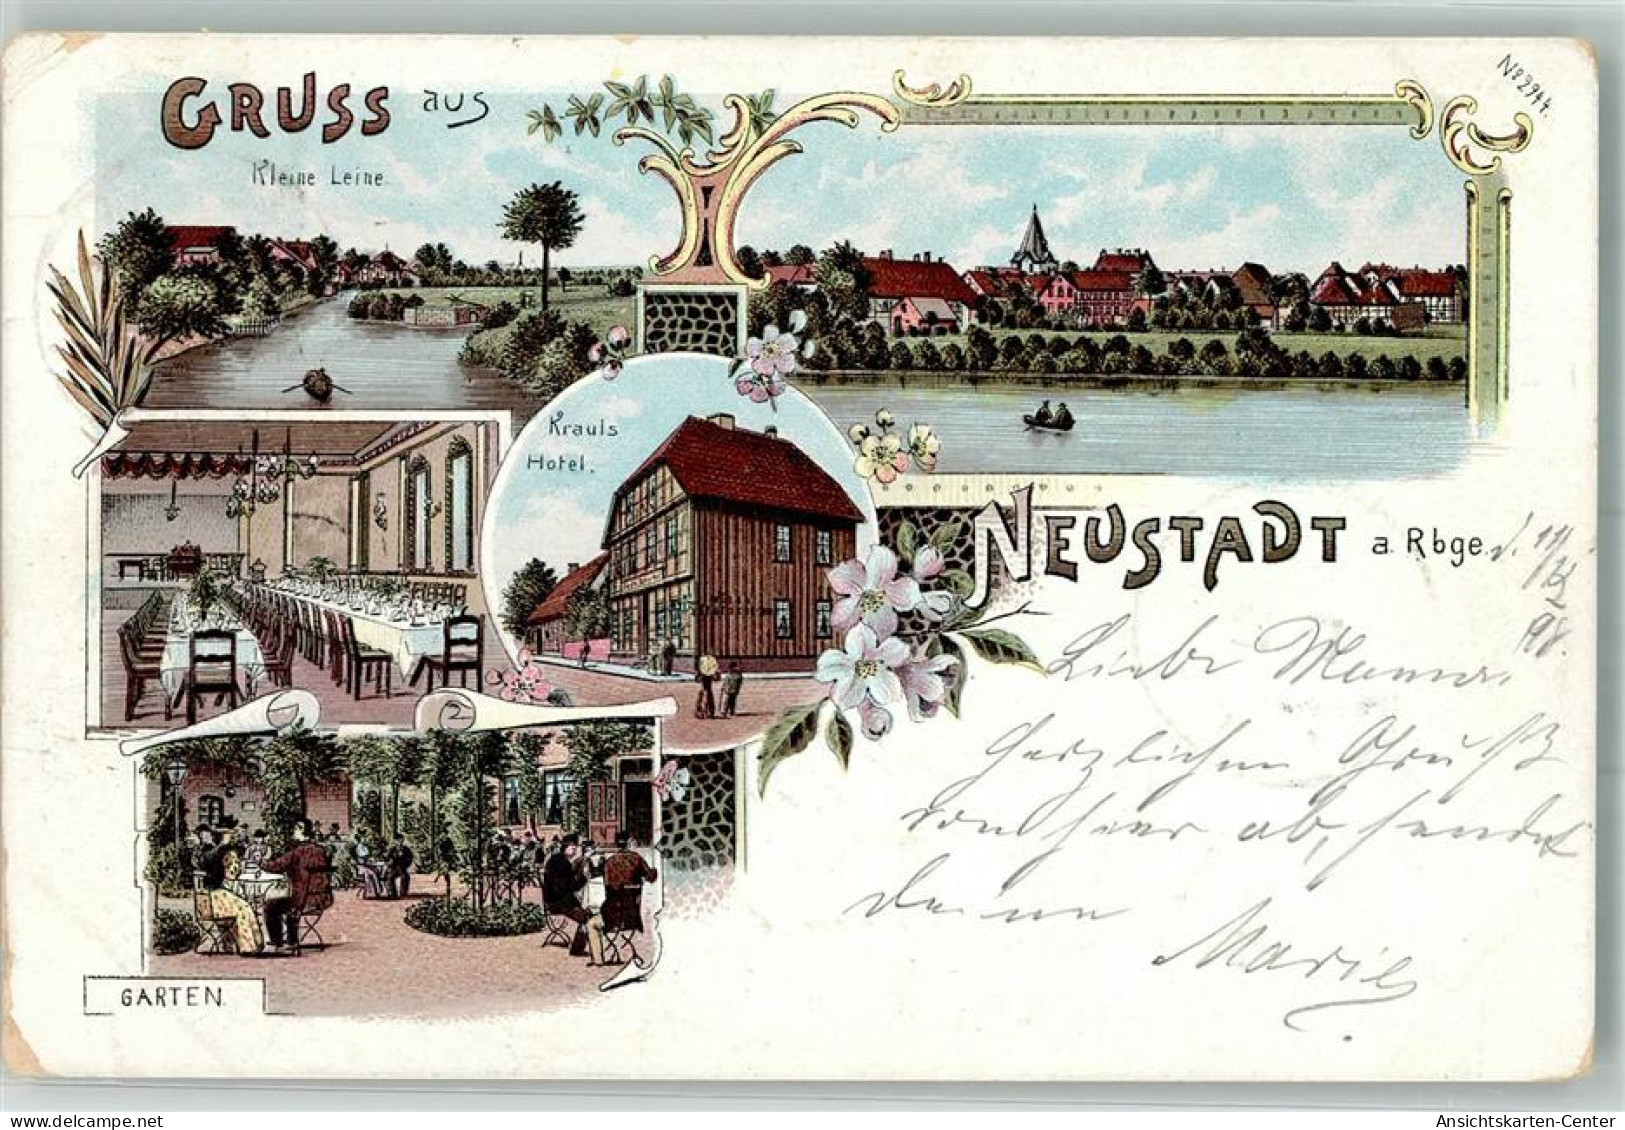 GRUSS aus
Kleine Leine.
No 2944.
Krauls
Hotel.
NEUSTADT a. Rbge.
d. 19/
98.
Liebe Mama.
Herzlichen Gruß
von hier ab, sendet
Deine
Marie
2
GARTEN.
Ansichtskarten-Center